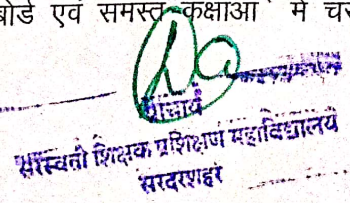 बोर्ड एवं समस्त कक्षाओं में
प्राचार्य
सरस्वती शिक्षक प्रशिक्षण महाविद्यालय
सरदारशहर